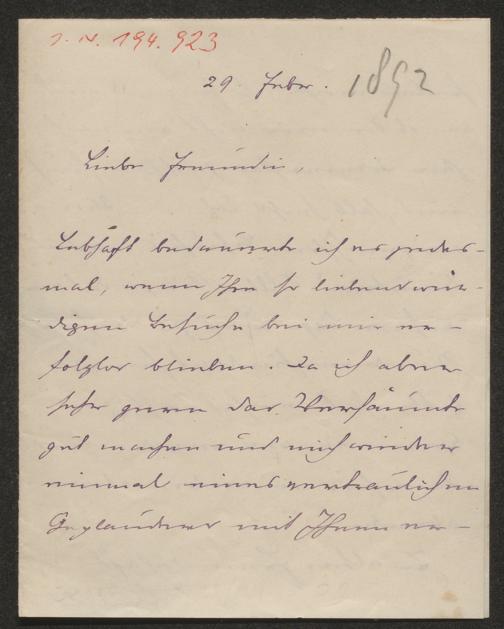 I. N. 194.923
29 Febr. 1892
Liebe Freundin,
Lebhaft bedauerte ich es jedes-
mal, wenn Ihre so liebenswür-
digen Besuche bei mir er-
folglos blieben. Da ich aber
sehr gerne das Versäumte
gut machen und mich wieder
einmal eines vertraulichen
Geplauders mit Ihnen er-